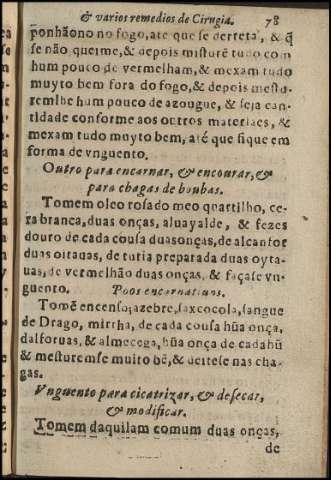 & varios remedios de Cirugia. 78
ponhãono no fogo, ate que se derreta, & q̃
se não queime, & depois misturẽ tudo com
hum pouco de vermelham, & mexam tudo
muyto bem fora do fogo, & depois mestu-
remlhe hum pouco de azougue, & seja can-
tidade conforme aos outros materiaes, &
mexam tudo muyto bem, até que fique em
forma de vnguento.
Outro para encarnar, & encourar, &
para chagas de boubas.
Tomem oleo rosado meo quartilho, ce-
ra branca, duas onças, aluayalde, & fezes
douro de cada cousa duas onças, de alcanfor
duas oitauas, de tutia preparada duas oyta-
uas, de vermelhão duas onças, & façase vn-
guento. Poos encarnatiuos.
Tomẽ encenso, azebre, saxcocola, sangue
de Drago, mirrha, de cada cousa hũa onça,
dalforuas, & almecega, hũa onça de cada hũ
& mesturemse muito bẽ, & deitese nas cha-
gas.
Vnguento para cicatrizar, & desecar,
& modificar.
Tomem daquilam comum duas onças,
de